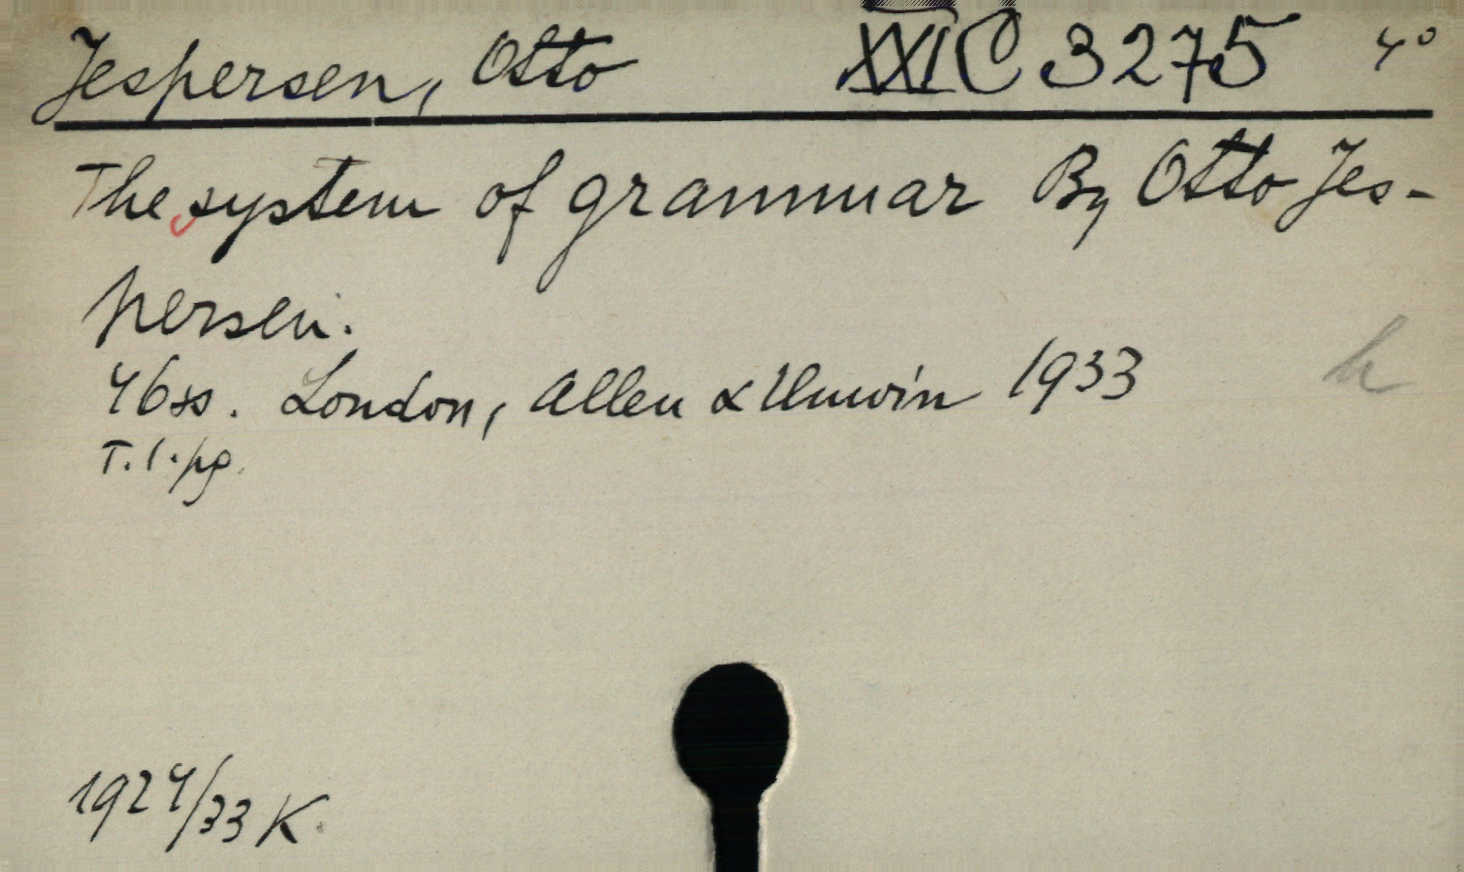 Jespersen, Otto XXI C 3275 4°
The system of grammar By Otto Jes-
persen.
46ss. London, Allen & Unwin 1933
T. l. pg.
h
1924/33 K.